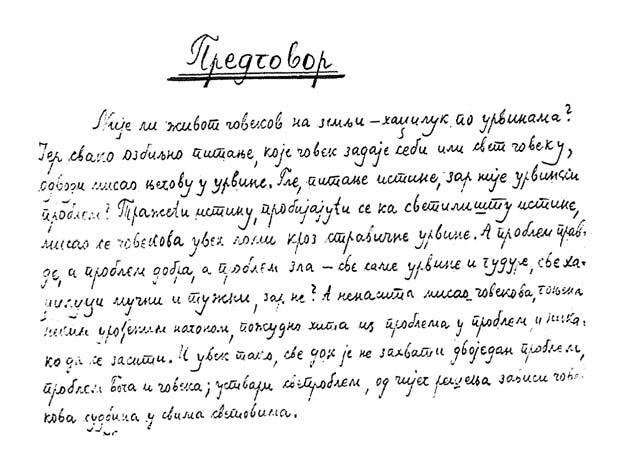 Предговор
Није ли живот човеков на земљи – хаџилук по урвинама?
Јер свако озбиљно питање, које човек задаје себи или свет човеку,
одвози мисао његову у урвине. Гле, питање истине, зар није урвински
проблем? Тражећи истину, пробијајући се ка светилишту истине,
мисао се човекова увек ломи кроз стравичне урвине. А проблем прав-
де, а проблем добра, а проблем зла – све саме урвине и чудује, све ха-
џилуци мучни и тужни, зар не? А ненасита мисао човекова, гоњена
неким урођеним нагоном, пожудно хита из проблема у проблем, и ника-
ко да се засити. И увек тако, све док је не захвати двоједан проблем,
проблем Бога и човека; уствари проблем, од чијег решења зависи чове-
кова судбина у свима световима.